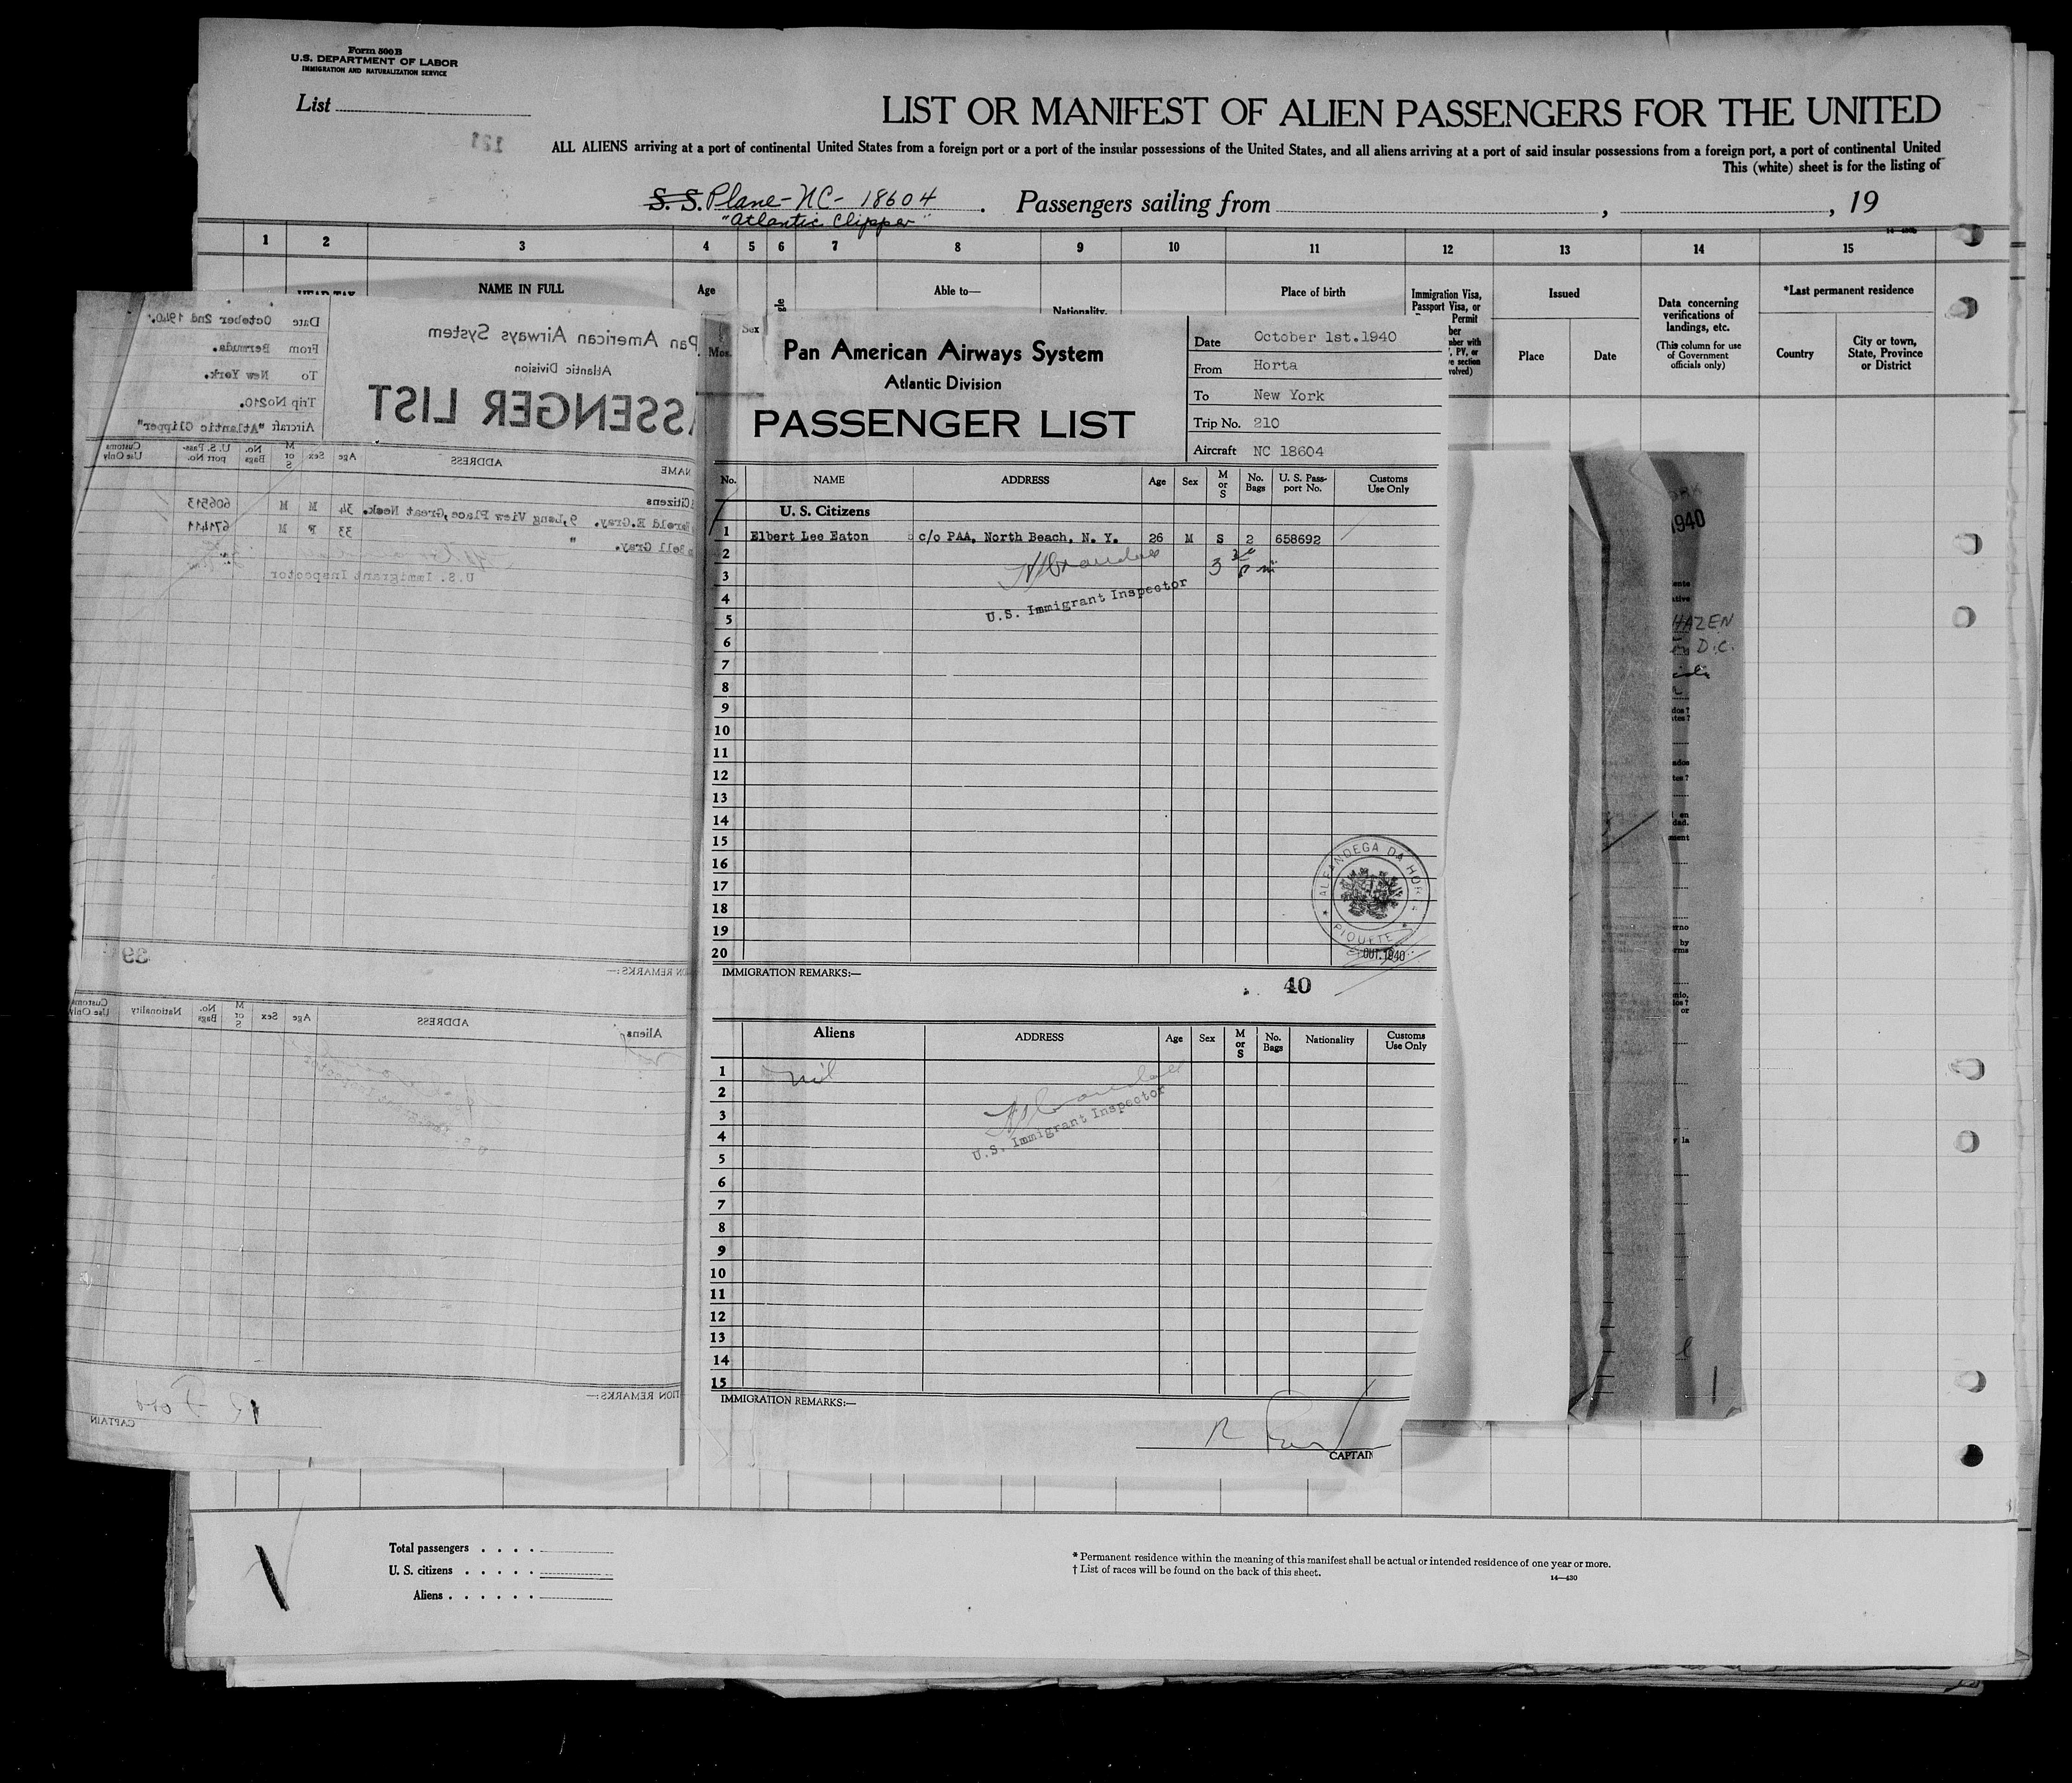 Form 500 B
U.S. DEPARTMENT OF LABOR
IMMIGRATION AND NATURALIZATION SERVICE
List
121
LIST OR MANIFEST OF ALIEN PASSENGERS FOR THE UNITED
ALL ALIENS arriving at a port of continental United States from a foreign port or a port of the insular possessions of the United States, and all aliens arriving at a port of said insular possessions from a foreign port, a port of continental United
This (white) sheet is for the listing of
S. S. Plane-NC-18604 . Passengers sailing from , , 19
"Atlantic Clipper"
1 2 3 4 5 6 7 8 9 10 11 12 13 14 15
NAME IN FULL
Age
Mos.
Sex
Able to—
Nationality.
Place of birth
Immigration Visa,
Passport Visa, or
Permit
Issued
Place Date
Data concerning
verifications of
landings, etc.
(This column for use
of Government
officials only)
*Last permanent residence
Country
City or town,
State, Province
or District
Pan American Airways System
Atlantic Division
PASSENGER LIST
Date October 2nd 1940.
From Bermuda.
To New York.
Trip No 210.
Aircraft "Atlantic Clipper"
NAME ADDRESS Age Sex M or S No. Bags U. S. Pass-port No. Customs Use Only
Citizens
Harold E.Gray. 9, Long View Place, Great Neck. 34 M M 606513
Bell Gray. " 33 F M 671441
U.S. Immigrant Inspector
39
REMARKS:—
Aliens ADDRESS Age Sex M or S No. Bags Nationality Customs Use Only
REMARKS:—
CAPTAIN
Pan American Airways System
Atlantic Division
PASSENGER LIST
Date October 1st.1940
From Horta
To New York
Trip No. 210
Aircraft NC 18604
No. NAME ADDRESS Age Sex M or S No. Bags U. S. Pass-port No. Customs Use Only
U. S. Citizens
1 Elbert Lee Eaton c/o PAA, North Beach, N. Y. 26 M S 2 658692
2
3
4
U.S. Immigrant Inspector
5
6
7
8
9
10
11
12
13
14
15
16
17
18
19
20
ALFANDEGA DA HORTA
PIQUETE
OUT.1940
IMMIGRATION REMARKS:—
40
Aliens ADDRESS Age Sex M or S No. Bags Nationality Customs Use Only
1 nil
2
3
4
U.S. Immigrant Inspector
5
6
7
8
9
10
11
12
13
14
15
IMMIGRATION REMARKS:—
CAPTAIN
1940
HAZEN
D.C.
Total passengers . . . .
U. S. citizens . . . . .
Aliens . . . . . .
* Permanent residence within the meaning of this manifest shall be actual or intended residence of one year or more.
† List of races will be found on the back of this sheet.
14—430